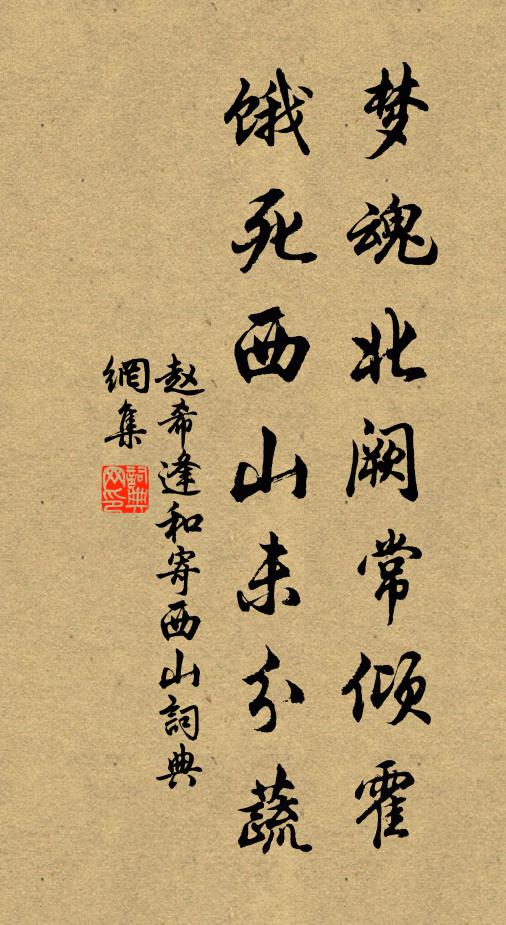 梦魂北阙常倾霍
饿死西山未分蔬
赵希逢和寄西山詞典
網集
詞典
网印